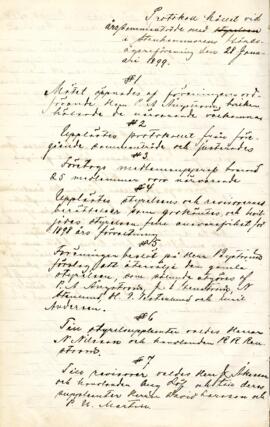 Protokoll hållet vid
årssammanträde med styrelsen
i Stenhammarens
ägareförening den 28 Janu-
ari 1899.
#1
Mötet öppnades af föreningens ord-
förande Herr P. A. Ångström, hvilken
hälsade de närvarande välkomna
#2
Upplästes protokollet från före-
gående sammanträde och justerades
#3
Företogs medlemsupprop hvarvid
25 medlemmar voro närvarande
#4
Upplästes styrelsens och revisorernes
berättelser som godkändes, och
styrelsen full ansvarsfrihet för
1898 års förvaltning
#5
Föreningen beslöt på Herr Byströms
förslag att återvälja den gamla
styrelsen, som sålunda utgöres af
P. A. Ångström, N
H. J. och Emil
Andersson.
#6
Till styrelsesuppleanter valdes Herrar
N. Nilsson och handlanden
#7
Till revisorer valdes Herr J. Åkesson
och handlanden och till deras
suppleanter Herrar David Larsson och
P. N. Martin